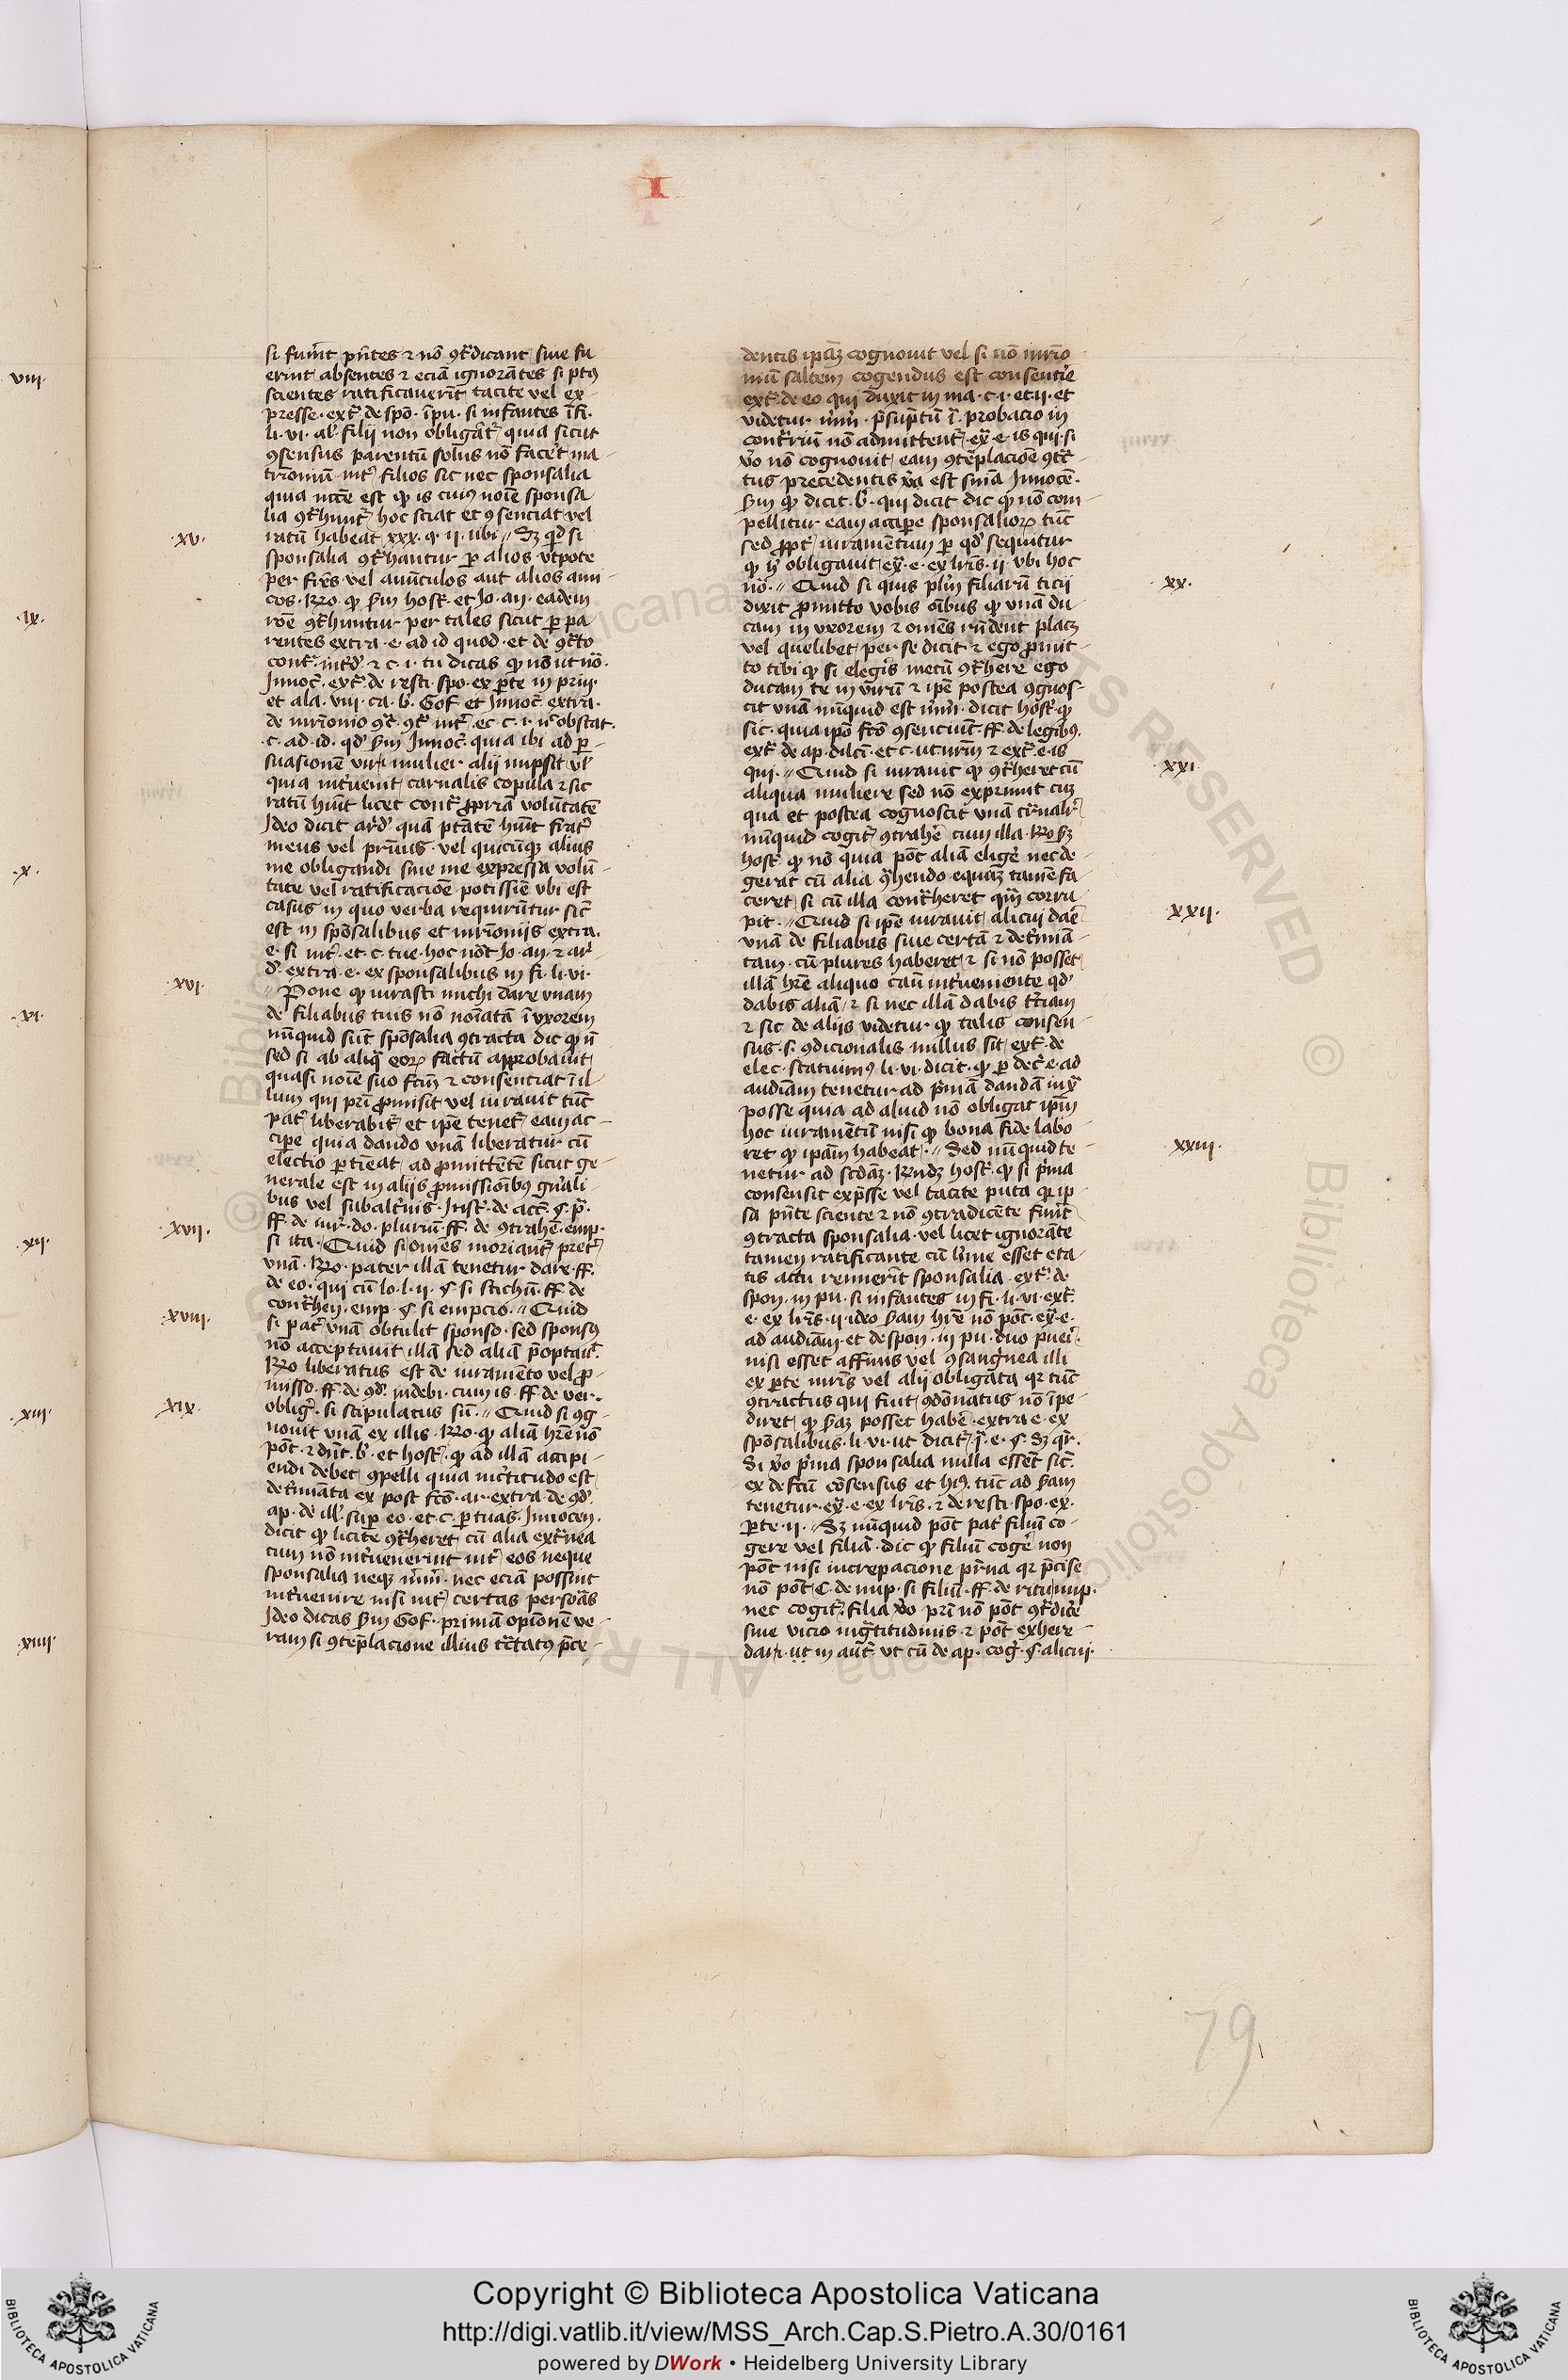 I
si fuerint pñtes ⁊ nõ ꝯt̃dicant siue fu
erint absentes ⁊ eciã ignorãtes si ptꝰ
scientes ratificauerĩt tacite vel ex-
presse · ext̃ · de spõ · ĩpu · si infantes ĩ fi ·
li · vi · al̃ filij non obligãt̃ quia sicut
ꝯsensus parentũ solus nõ facet̃ ma-
trimoniũ int̃ filios sic nec sponsalia
quia nccẽ est ꝙ is cuiꝰ noĩe sponsa
lia ꝯt̃hunt̃ hoc sciat et ꝯsenciat vel
ratũ habeat xxx · q · ii · ubi // Sꝫ qd̃ si
sponsalia ꝯt̃hantur ꝑ alios vtpote
per frẽs vel auũculos aut alios ami
cos · Rño · ꝙ ẜm host̃ · et Jo · an · eadem
rõe ꝯt̃huntur per tales sicut ꝑ pa
rentes extra · e · ad id quod · et de ꝯt̃to
cont̃ · int̃d̃ · ⁊ c · i · tu dicas ꝙ nõ ut nõ ·
Innoc̃ · ext̃ · de resti · spo · ex ꝑte in prin ·
et ala · viii · ca · b̃ · Gof et Innoc̃ extra ·
de mr̃imonio ꝯt̃ · ꝯt̃ int̃ · ec · c · i · nͨ obstat ·
· c · ad · id · qd̃ ẜm Innoc̃ · quia ibi ad ꝑ-
suasionẽ viri mulier alij nupsit vl̃
quia int̃uenit carnalis copula ⁊ sic
ratũ hũit licet cont̃ ꝓpriã volũtatẽ
Ideo dicit ard̃ quã ptãtẽ hũit frat̃
meus vel priuus · vel quicũqꝫ alius
me obligandi sine me expressa volũ-
tate vel ratificaciõe potissiẽ vbi est
casus in quo verba requirũtur sic̃
est in spõsalibus et mr̃imonijs extra ·
e · si int̃ · et c · tue · hoc nõt Jo · an · ⁊ ar
d̃ · extra · e · ex sponsalibus in fi · li · vi ·
// Pone ꝙ iurasti michi dare vnam
de filiabus tuis nõ noĩatã ĩ vxorem
nũquid sũt spõsalia ꝯtracta dic ꝙ ñ
sed si ab aliq̃ eoꝝ factũ approbauit
quasi noĩe suo fcm̃ ⁊ consenciat ĩ il-
lum qui pri ꝓmisit vel iurauit tũc
pat̃ liberabit̃ et ipẽ tenet̃ eam ac-
cipe quia dando vnã liberatur cũ
electio ꝑtineat ad ꝓmittẽtẽ sicut ge-
nerale est in alijs ꝓmissionibꝰ gñali-
bus vel subalt̃nis · Inst̃ · de act̃ · § · p̃ ·
ff · de iur̃ · do · pluriũ · ff · de ꝯtrahẽ · emp ·
si ita · // Quid si omẽs moriãt̃ pret̃
vnã · Rño · pater illã tenetur dare · ff ·
de eo · qui cũ lo · l · ii · § · si stichũ · ff · de
cont̃hen · emp · § si empcio · // Quid
si pat̃ vnã obtulit sponso · sed sponsꝰ
nõ acceptauit illã sed aliã p̃optauit̃
Rño liberatus est de iuramẽto vel ꝓ-
misso · ff · de ꝯd̃ · indebi · cum is · ff · de ver ·
oblig̃ · si stipulatus sũ · // Quid si ꝯg-
nouit vnã ex illis · Rño · ꝙ aliã hr̃e nõ
põt · ⁊ dñt · b̃ · et host̃ · ꝙ ad illã accipi-
endi debet ꝯpelli quia inc̃titudo est
det̃minata ex post fcõ · ar · extra · de ꝯd̃ ·
ap · de ill̃ · sup eo · et · c · ꝑ tuas · Innocen ·
dicit ꝙ licite ꝯt̃heret cũ alia ext̃nea
cum nõ int̃uenerint int̃ eos neque
sponsalia neqꝫ mr̃m̃ · nec eciã possint
int̃uenire nisi int̃ certas persoñas
Ideo dicas ẜm Gof · primã opinõnẽ ve-
ram si ꝯtẽplacione illius tc̃tatꝰ p̃ce-
·xv·
·xvi·
·xvii·
·xviii·
·xix·
dentis ipãꝫ cognouit vel si nõ mr̃io-
niũ saltem cogendus est consentĩe
ext̃ · de eo qui duxit in ma · c · i · et ii · et
videtur mr̃m̃ · p̃sup̃tũ ĩ · probacio in
cont̃riũ nõ admittent̃ · ex̃ · e · is qui · si
ṽo nõ cognouit eam ꝯtẽplacõe ꝯt̃c-
tus precedentis v̾a est sñia Innocẽ ·
ẜm ꝙ dicit · b̃ · qui dicit dic ꝙ nõ com-
pellitur eam accipe sponsalioꝝ tũc
sed ꝓpt̃ iuramẽtum ꝑ qd̃ sequitur
ꝙ h̃ obligauit ex̃ · e · ex lr̃is · ii · vbi hoc
nõ · // Quid si quis plr̃i filiarũ ticij
dixit ꝓmitto vobis oĩbus ꝙ vnã du-
cam in vxorem ⁊ omẽs rñdent placꝫ
vel quelibet per se dicit ⁊ ego ꝓmit-
to tibi ꝙ si elegis̃ mecũ ꝯt̃here ego
ducam te in virũ ⁊ ipẽ postea ꝯgnos-
cit vnã nũquid est mr̃m̃ · dicit host̃ ꝙ
sic · quia ipõ fcõ ꝯsenciũt · ff · de legibꝰ ·
ext̃ · de ap · dilc̃i · et c · ut nr̃m ⁊ ext̃ · e · is
qui · // Quid si iurauit ꝙ ꝯt̃heret cũ
aliqua muliere sed nõ exprimit cuꝫ
qua et postea cognoscit vnã cr̃nalit̃
nũquid cogit̃ ꝯtrahẽ cum illa · Rño ẜꝫ
host̃ ꝙ nõ quia põt aliã eligẽ nec de-
gerat cũ alia ꝯ̃hendo · equaꝫ tamẽ fa-
ceret si cũ illa cont̃heret qũa corru-
pit · // Quid si ipẽ iurauit alicui daẽ
vnã de filiabus siue certã ⁊ det̃miã-
tam · cũ plures haberet ⁊ si nõ posset
illã hr̃e aliquo cañ int̃ueniente qd̃
dabis aliã ⁊ si nec illã dabis tr̃ciam
⁊ sic de alijs videtur ꝙ talis consen-
sus · s · ꝯdicionalis nullus sit ext̃ · de
elec · statuimꝰ li · vi · dicit · ꝙ ꝑ dec̃ · e · ad
audiãm tenetur ad p̃mã dandã iux̃
posse quia ad aliud nõ obligat ipm̃
hoc iuramẽtũ nisi ꝙ bona fide labo-
ret ꝙ ipãm habeat · // Sed nũquid te-
netur ad scdãꝫ · Rñdꝫ host̃ · ꝙ si p̃ma
consensit exp̃sse vel tacite puta qꝛ ip-
sa pñte sciente ⁊ nõ ꝯtradicẽte fuit̃
ꝯtracta sponsalia · vel licet ignorãte
tamen ratificante cũ lr̃ime esset eta-
tis actu rennerĩt sponsalia · ext̃ · de
spon · in pu · si infantes in fi · li · vi · ext̃
e · ex lr̃is · ii · ideo ẜam hr̃e nõ põt · ex̃ · e ·
ad audiãm · et de spon · in pu · duo pueri ·
nisi esset affinis vel ꝯsangũnea illi
ex ꝑte mr̃is vel alij obligata qꝛ tũc
ꝯtractus qui fuit ꝯdõnatus nõ ĩpe-
diret ꝙ ẜaꝫ posset habẽ · extra e · ex
spõsalibus · li · vi · ut dicit̃ ĩ · e · § · Sꝫ qr̃ ·
Si ṽo p̃ma sponsalia nulla essẽt sic̃
ex defcũ cõsensus et hiꝰ · tũc ad ẜam
tenetur · ex̃ · e · ex lr̃is · ⁊ de resti · spo · ex ·
ꝑte · ii · // Sꝫ nũquid põt pat̃ filiũ co-
gere vel filiã · dic ꝙ filiũ cogẽ non
põt nisi increpacione pr̃na qꝛ p̃cise
nõ põt C · de nup · si filiũ · ff · de ritu nup ·
nec cogit̃ · filia ṽo pri nõ põt ꝯt̃dicẽ
sine vicio ingratitudinis · ⁊ põt exhere-
dari · ut in aut̃ · vt cũ de ap · cog̃ · § · alicui ·
·xx·
·xxi·
·xxii·
·xxiii·
79
viii·
·ix·
·x·
·xi·
·xii·
·xiii·
·xiiii·
Copyright © Biblioteca Apostolica Vaticana
http://digi.vatlib.it/view/MSS_Arch.Cap.S.Pietro.A.30/0161
powered by DWork • Heidelberg University Library
BIBLIOTECA APOSTOLICA VATICANA
BIBLIOTECA APOSTOLICA VATICANA